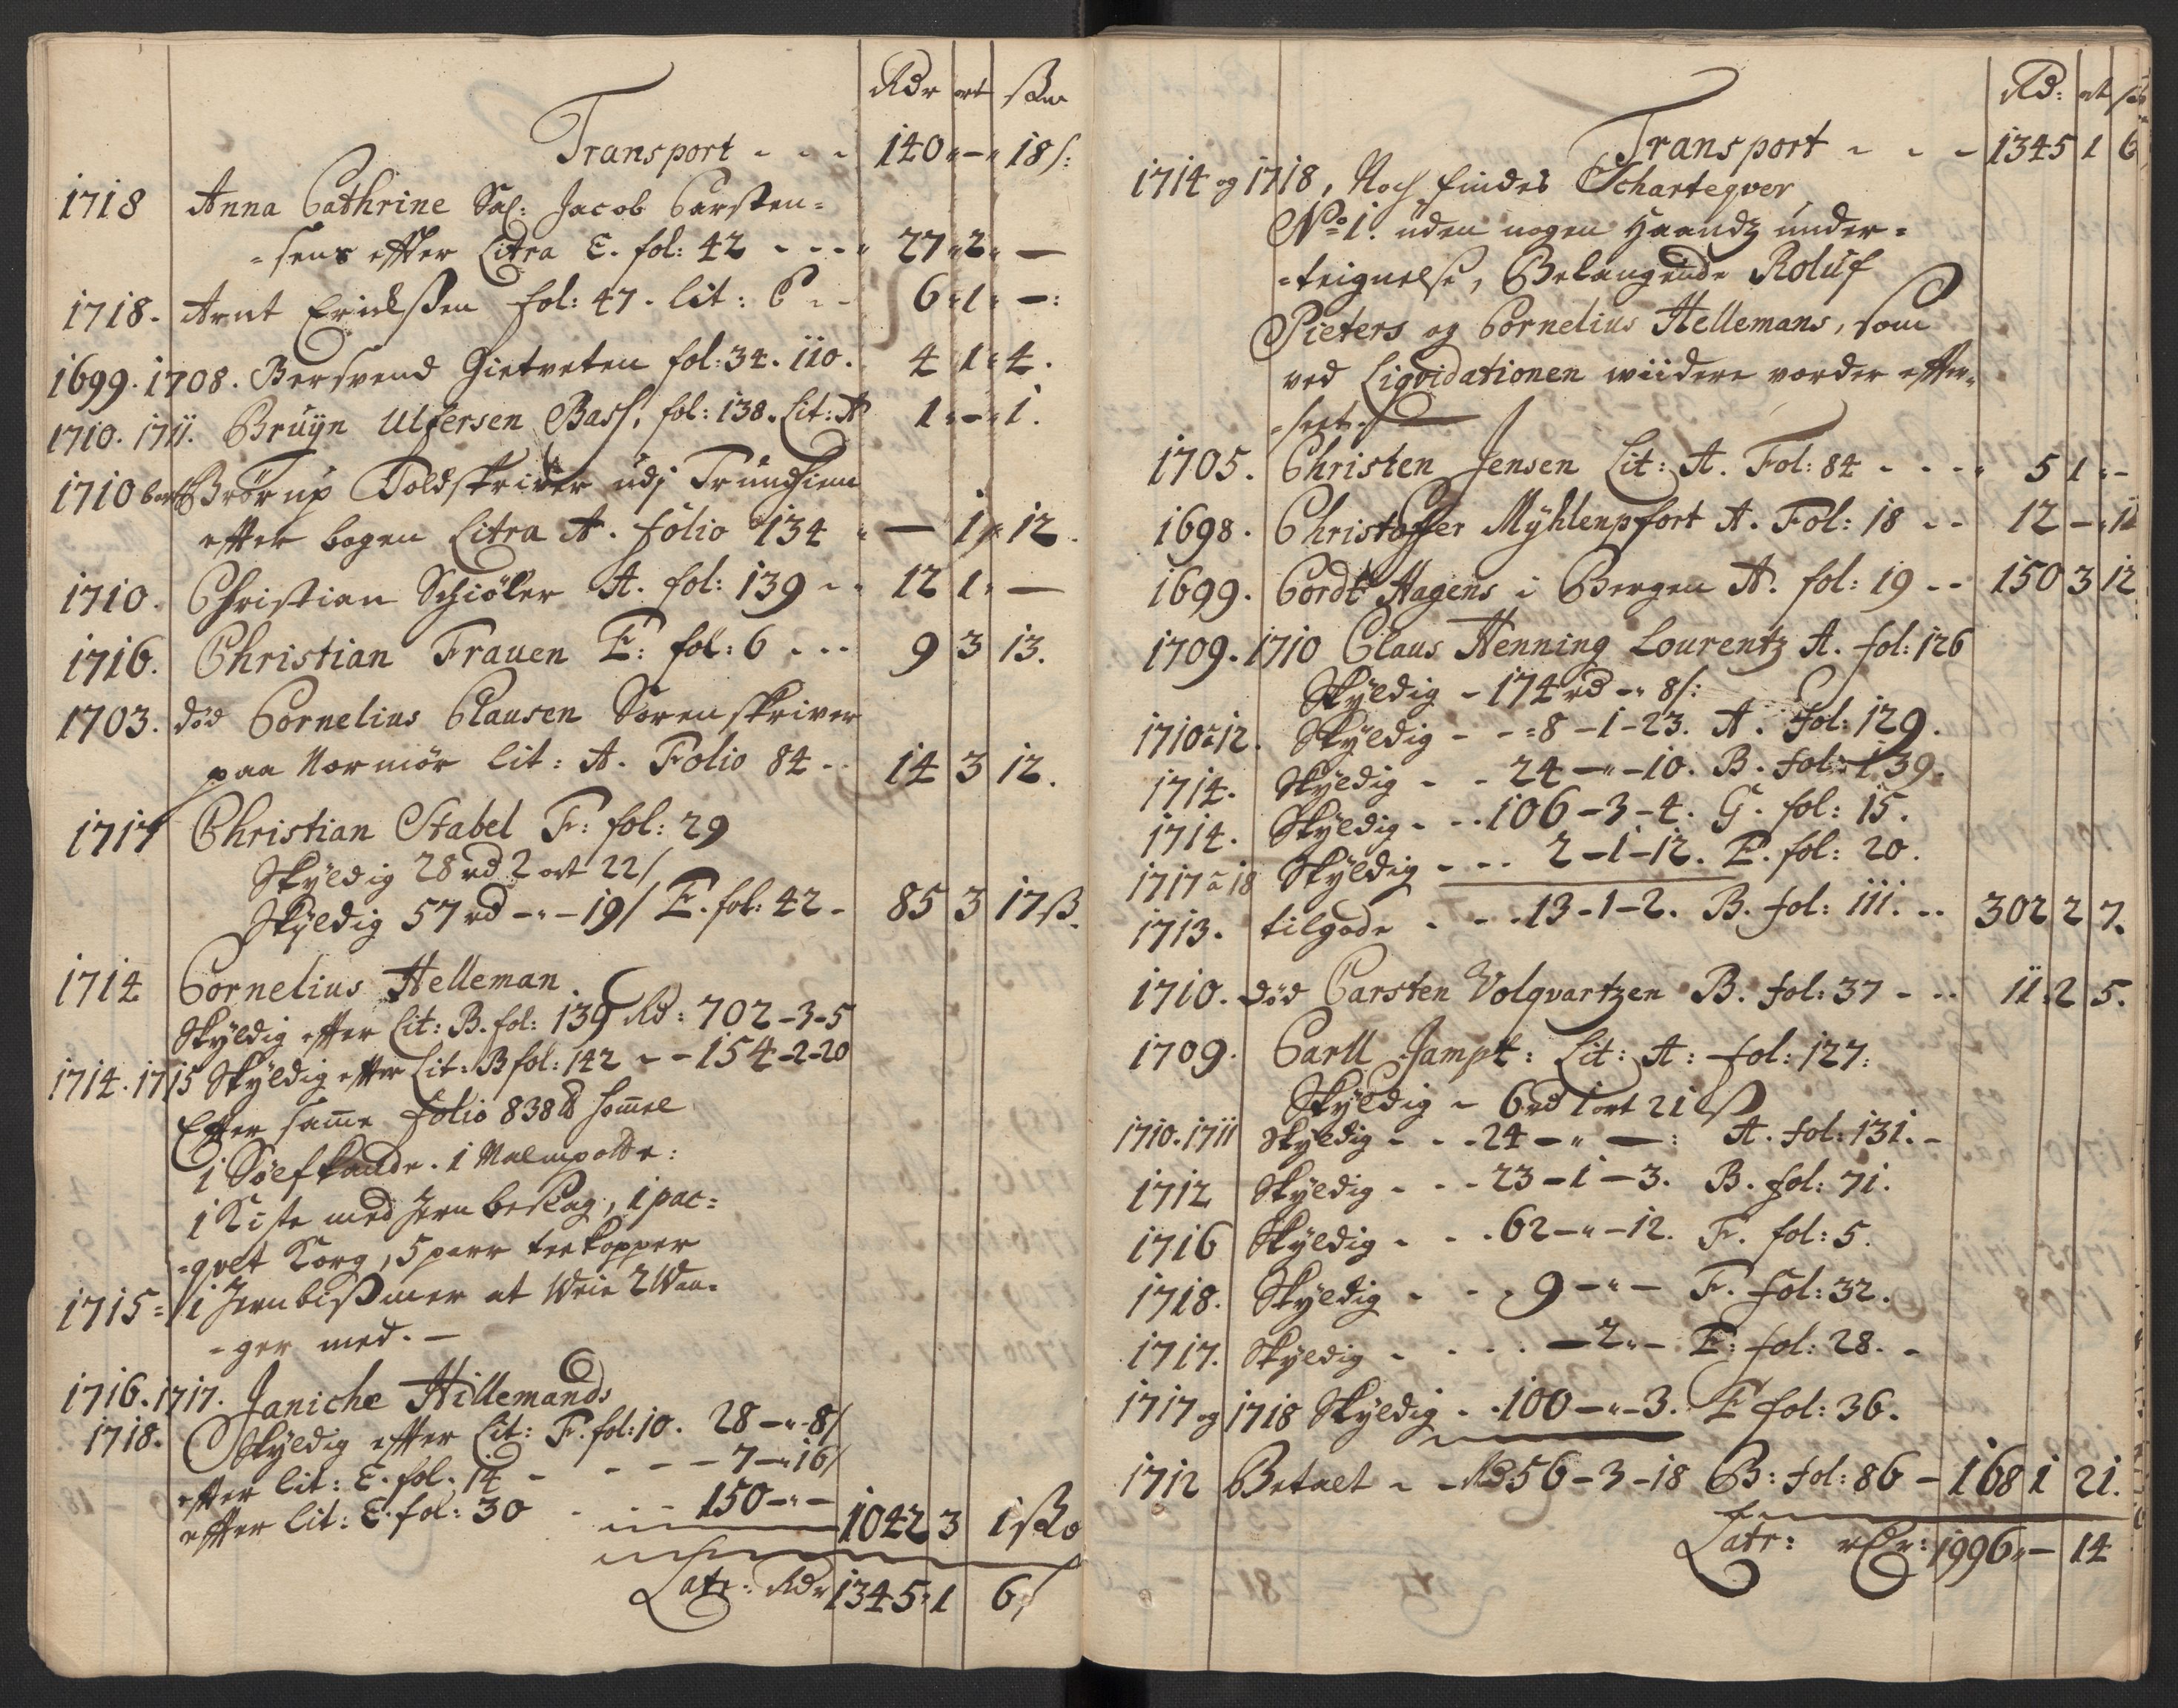 Rdr ort sk
Transport - - - 140 „ - „ 18 s:
1718 Anna Cathrine Sal: Jacob Carsten=
=sens effter Litra E. fol: 42 - - - 27 „ 2 „ -
1718. Arnt Ericksen fol: 47. lit: E - - 6 „ 1 „ -:
1699. 1708. Bersvend Gietveten fol: 34. 110. 4 1 „ 4.
1710. 1711. Bruijn Ulfersen Bass, fol: 138. Lit: A 1 „ - „ 1.
1710 Brörup Toldskriver udj Trundhiem
effter bogen Litra A. folio 134 - 1 „ 12.
1710. Christian Schiöler A. fol: 139 - - 12 1 „ -
1716. Christian Frauen E: fol: 6 - - - 9 3 13.
1703. död Cornelius Clausen Sorenskriver
paa Normör lit: A. Folio 84 - - 14 3 12.
1717 Christian Stabel F: fol: 29
Skÿldig 28 rd 2 ort 22 /
Skÿldig 57 rd - „ - 19 / E. fol: 42 - 85 3 17 ß.
1714 Cornelius Helleman
Skÿldig effter Lit: B. fol: 139 Rd: 702 - 3 - 5
1714. 1715 Skÿldig effter Lit: B fol: 142 - - 154 - 2 - 20
Effter same folio 838 ℔ homel
1 Sölfkande. 1 Malmpotte:
1 Kiste med Jern beslag, 1 pac=
=qvet Korg, 5 parr teekopper
1715= 1 Jernbißmer at Weie 2 Waa=
=ger med. -
1716. 1717. Janiche Hillemands
1718. Skÿldig effter Lit: F. fol: 10. 28 - „ - 8 /
effter lit: E. fol. 14 - - - - 7 - „ 16 /
effter lit: E. fol: 30 - - - 150 - „ - 1042 3 1 ß
Latr: Rdr 1345 „ 1 6 /
Rd: ort sk
Transport - - - 1345 1 6
1714 og 1718, Noch findes Scharteqver
No 1. uden nogen Haandz under=
=teignelse, Belangende Roluf
Pieters og Cornelius Hellemans, som
ved Liqvidationen wiidere vorder effter=
=seet.
1705. Christen Jensen Lit: A. Fol: 84 - - - 5 1 „ -
1698. Christoffer Mÿhlenpfort A. Fol: 18 - - 12 - „ 12
1699. Cordt Hagens i Bergen A. fol: 19 - - 150 3 12
1709. 1710 Claus Henning Lourentz A. fol: 126
Skÿldig - 174 rd - „ 8 s:
1710 a 12. Skÿldig - - 8 - 1 - 23. A. Fol: 129.
1714. Skÿldig - - 24 - „ - 10. B. fol: 139.
1714. Skÿldig - - 106 - 3 - 4. G. fol: 15.
1717 a 18 Skÿldig - - - 2 - 1 - 12. E. fol: 20.
1713. tilgode - - - 13 - 1 - 2. B. fol: 111. - - 302 2 7.
1710. död Carsten Volqvartzen B. fol: 37 - - - 11 „ 2 5.
1709. Carll Jampt: Lit: A: fol: 127:
Skÿldig - 6 rd 1 ort 21 ß
1710. 1711 Skÿldig - - - 24 - „ - : A. fol: 131. -
1712 Skÿldig - - - 23 - 1 - 3. B. fol: 71.
1716 Skÿldig - - - 62 - „ - 12. F. fol: 5.
1718. Skÿldig - - - 9 - „ - F. fol: 32.
1717. Skÿldig - - - - 2 „ - E: fol: 28. -
1717 og 1718 Skÿldig - - 100 - „ - 3. E fol: 36.
1712 Betalt - - Rd: 56 - 3 - 18 B: fol: 86 - 168 1 21.
Latr: rdr: 1996 „ - 14